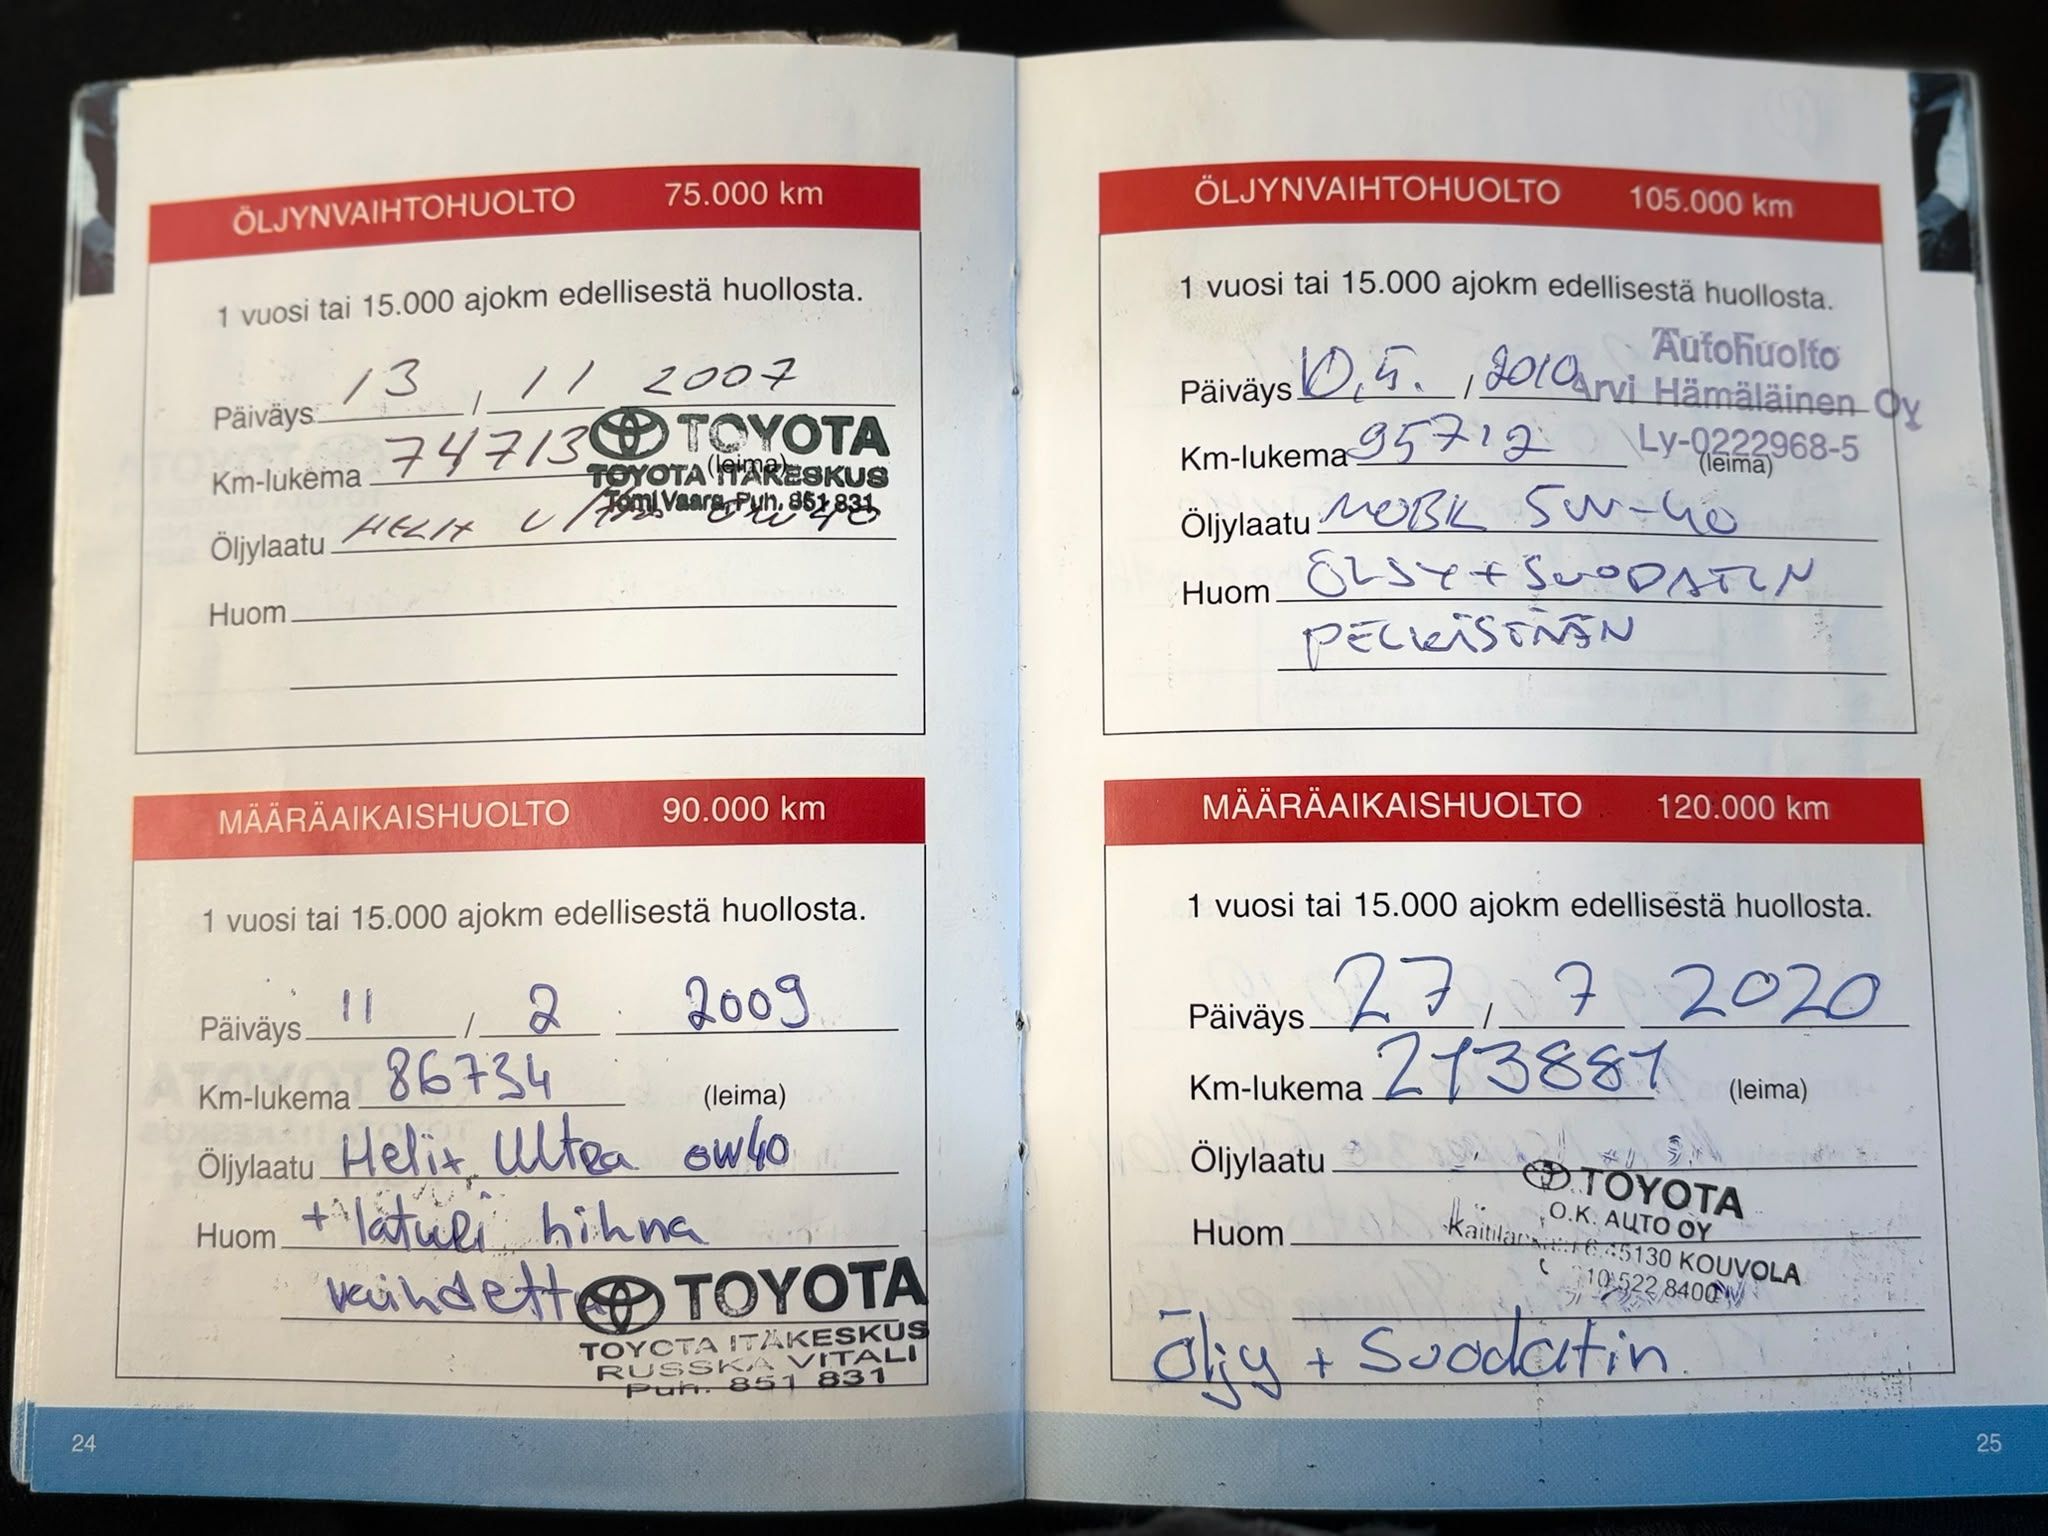 ÖLJYNVAIHTOHUOLTO 75.000 km
1 vuosi tai 15.000 ajokm edellisestä huollosta.
Päiväys 13 / 11 2007
TOYOTA
Km-lukema 74713 (leima)
TOYOTA ITÄKESKUS
Tomi Vaara, Puh. 851 831
Öljylaatu HELIX Ultra 0W40
Huom
MÄÄRÄAIKAISHUOLTO 90.000 km
1 vuosi tai 15.000 ajokm edellisestä huollosta.
Päiväys 11 / 2 2009
Km-lukema 86734 (leima)
Öljylaatu Helix Ultra 0W40
Huom + laturi hihna
vaihdettu
TOYOTA
TOYOTA ITÄKESKUS
RUSSKA VITALI
Puh. 851 831
24
ÖLJYNVAIHTOHUOLTO 105.000 km
1 vuosi tai 15.000 ajokm edellisestä huollosta.
Autohuolto
Päiväys 10.5. / 2010
Arvi Hämäläinen Oy
Km-lukema 95712
Ly-0222968-5
(leima)
Öljylaatu 5W-40
Huom ÖLJY + SUODATIN
PELKÄSTÄÄN
MÄÄRÄAIKAISHUOLTO 120.000 km
1 vuosi tai 15.000 ajokm edellisestä huollosta.
Päiväys 27 / 7 2020
Km-lukema 213881 (leima)
Öljylaatu
TOYOTA
O.K. AUTO OY
Huom
45130 KOUVOLA
010 522 8400
Öljy + Suodatin
25